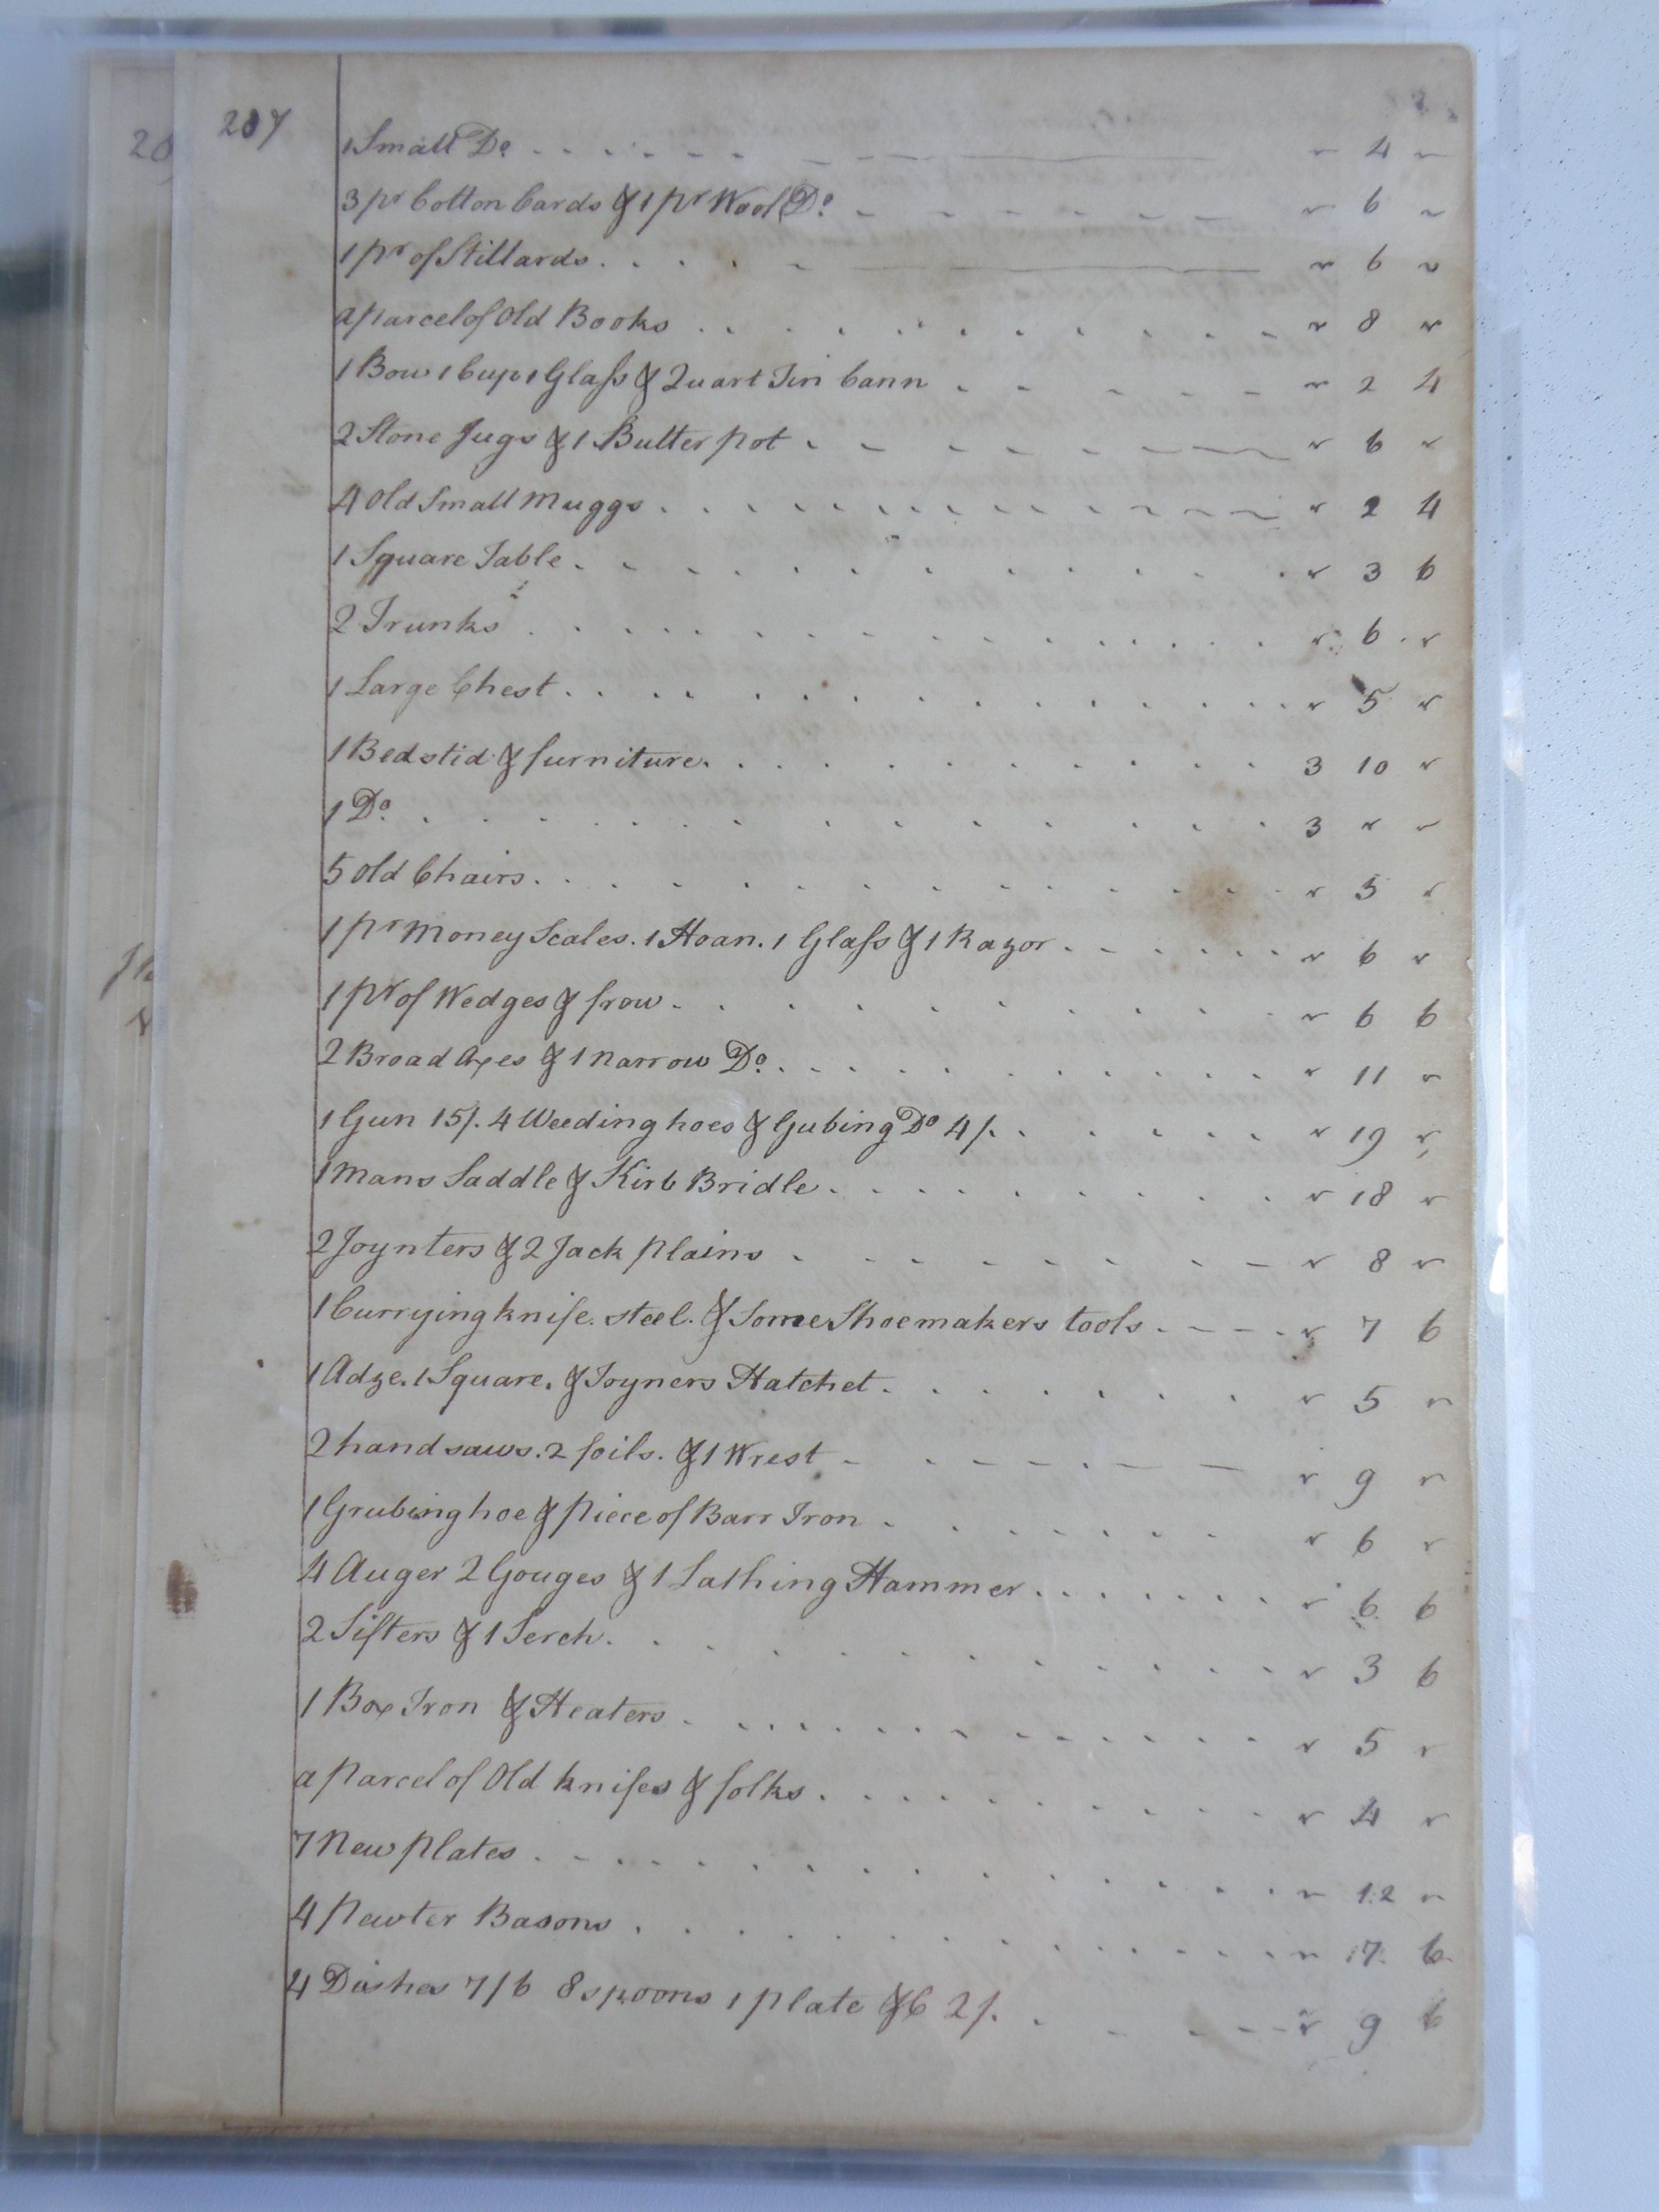 207
1 Small Do . . . . . . " 4 "
3 pr Cotton Cards & 1 pr Wool Do. " 6 "
1 pr of Stillards . . . . " 6 "
a parcel of Old Books . . . . " 8 "
1 Bow 1 Cup 1 Glass & Quart Tin Cann . . . . " 2 4
2 Stone Jugs & 1 Butter pot . . . . " 6 "
4 old Small Muggs . . . . " 2 4
1 Square Table . . . . " 3 6
2 Trunks . . . . " 6 "
1 Large Chest . . . . " 5 "
1 Bedstid & furniture . . . . 3 10 "
1 Do. . . . . 3 " "
5 old Chairs . . . . " 5 "
1 pr Money Scales. 1 Hoan. 1 Glass & 1 Razor . . . . " 6 "
1 pr of Wedges & frow . . . . " 6 6
2 Broad Axes & 1 narrow Do. . . . . " 11 "
1 Gun 15/. 4 Weeding hoes & Gubing Do 4/. . . . . " 19 "
1 Mans Saddle & Kirb Bridle . . . . " 18 "
2 Joynters & 2 Jack plains . . . . " 8 "
1 Currying knife. steel. & Some Shoemakers tools . . . . " 7 6
1 Adze. 1 Square. & Joyners Hatchet . . . . " 5 "
2 hand saws. 2 foils. & 1 Wrest . . . . " 9 "
1 Grubing hoe & piece of Barr Iron . . . . " 6 "
4 Auger 2 Gouges & 1 Lathing Hammer . . . . " 6 6
2 Sifters & 1 Serch . . . . " 3 6
1 Box Iron & Heaters . . . . " 5 "
a parcel of Old knifes & folks . . . . " 4 "
7 New plates . . . . " 12 "
4 Pewter Basons . . . . " 17 6
4 Dishes 7/6 8 spoons 1 plate &C 2/. . . . . " 9 6